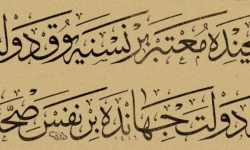 ینده معتبر بر نسنه یوق دول
دولت جهانده بر نفس صح